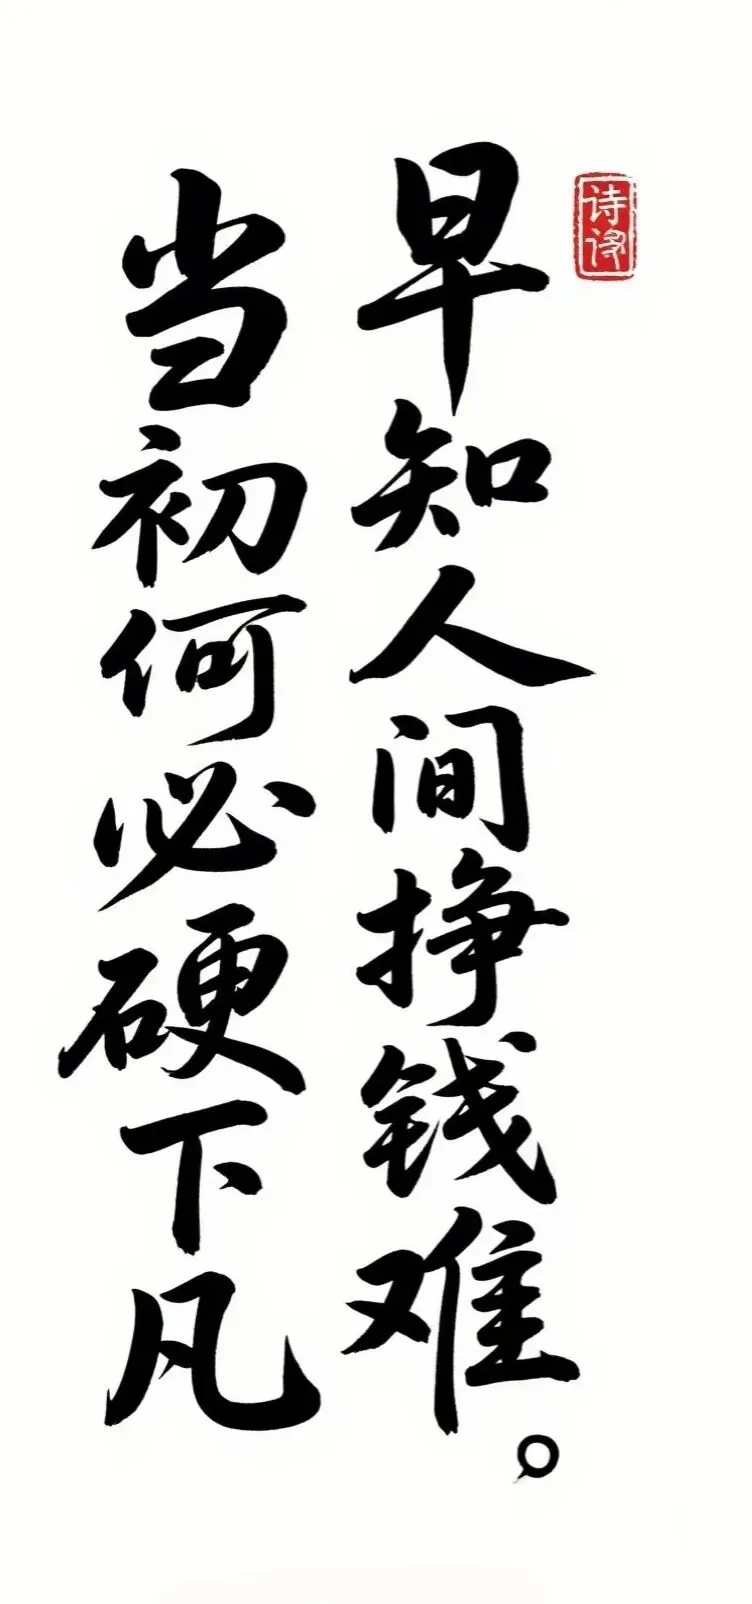 早知人间挣钱难。
当初何必硬下凡
诗